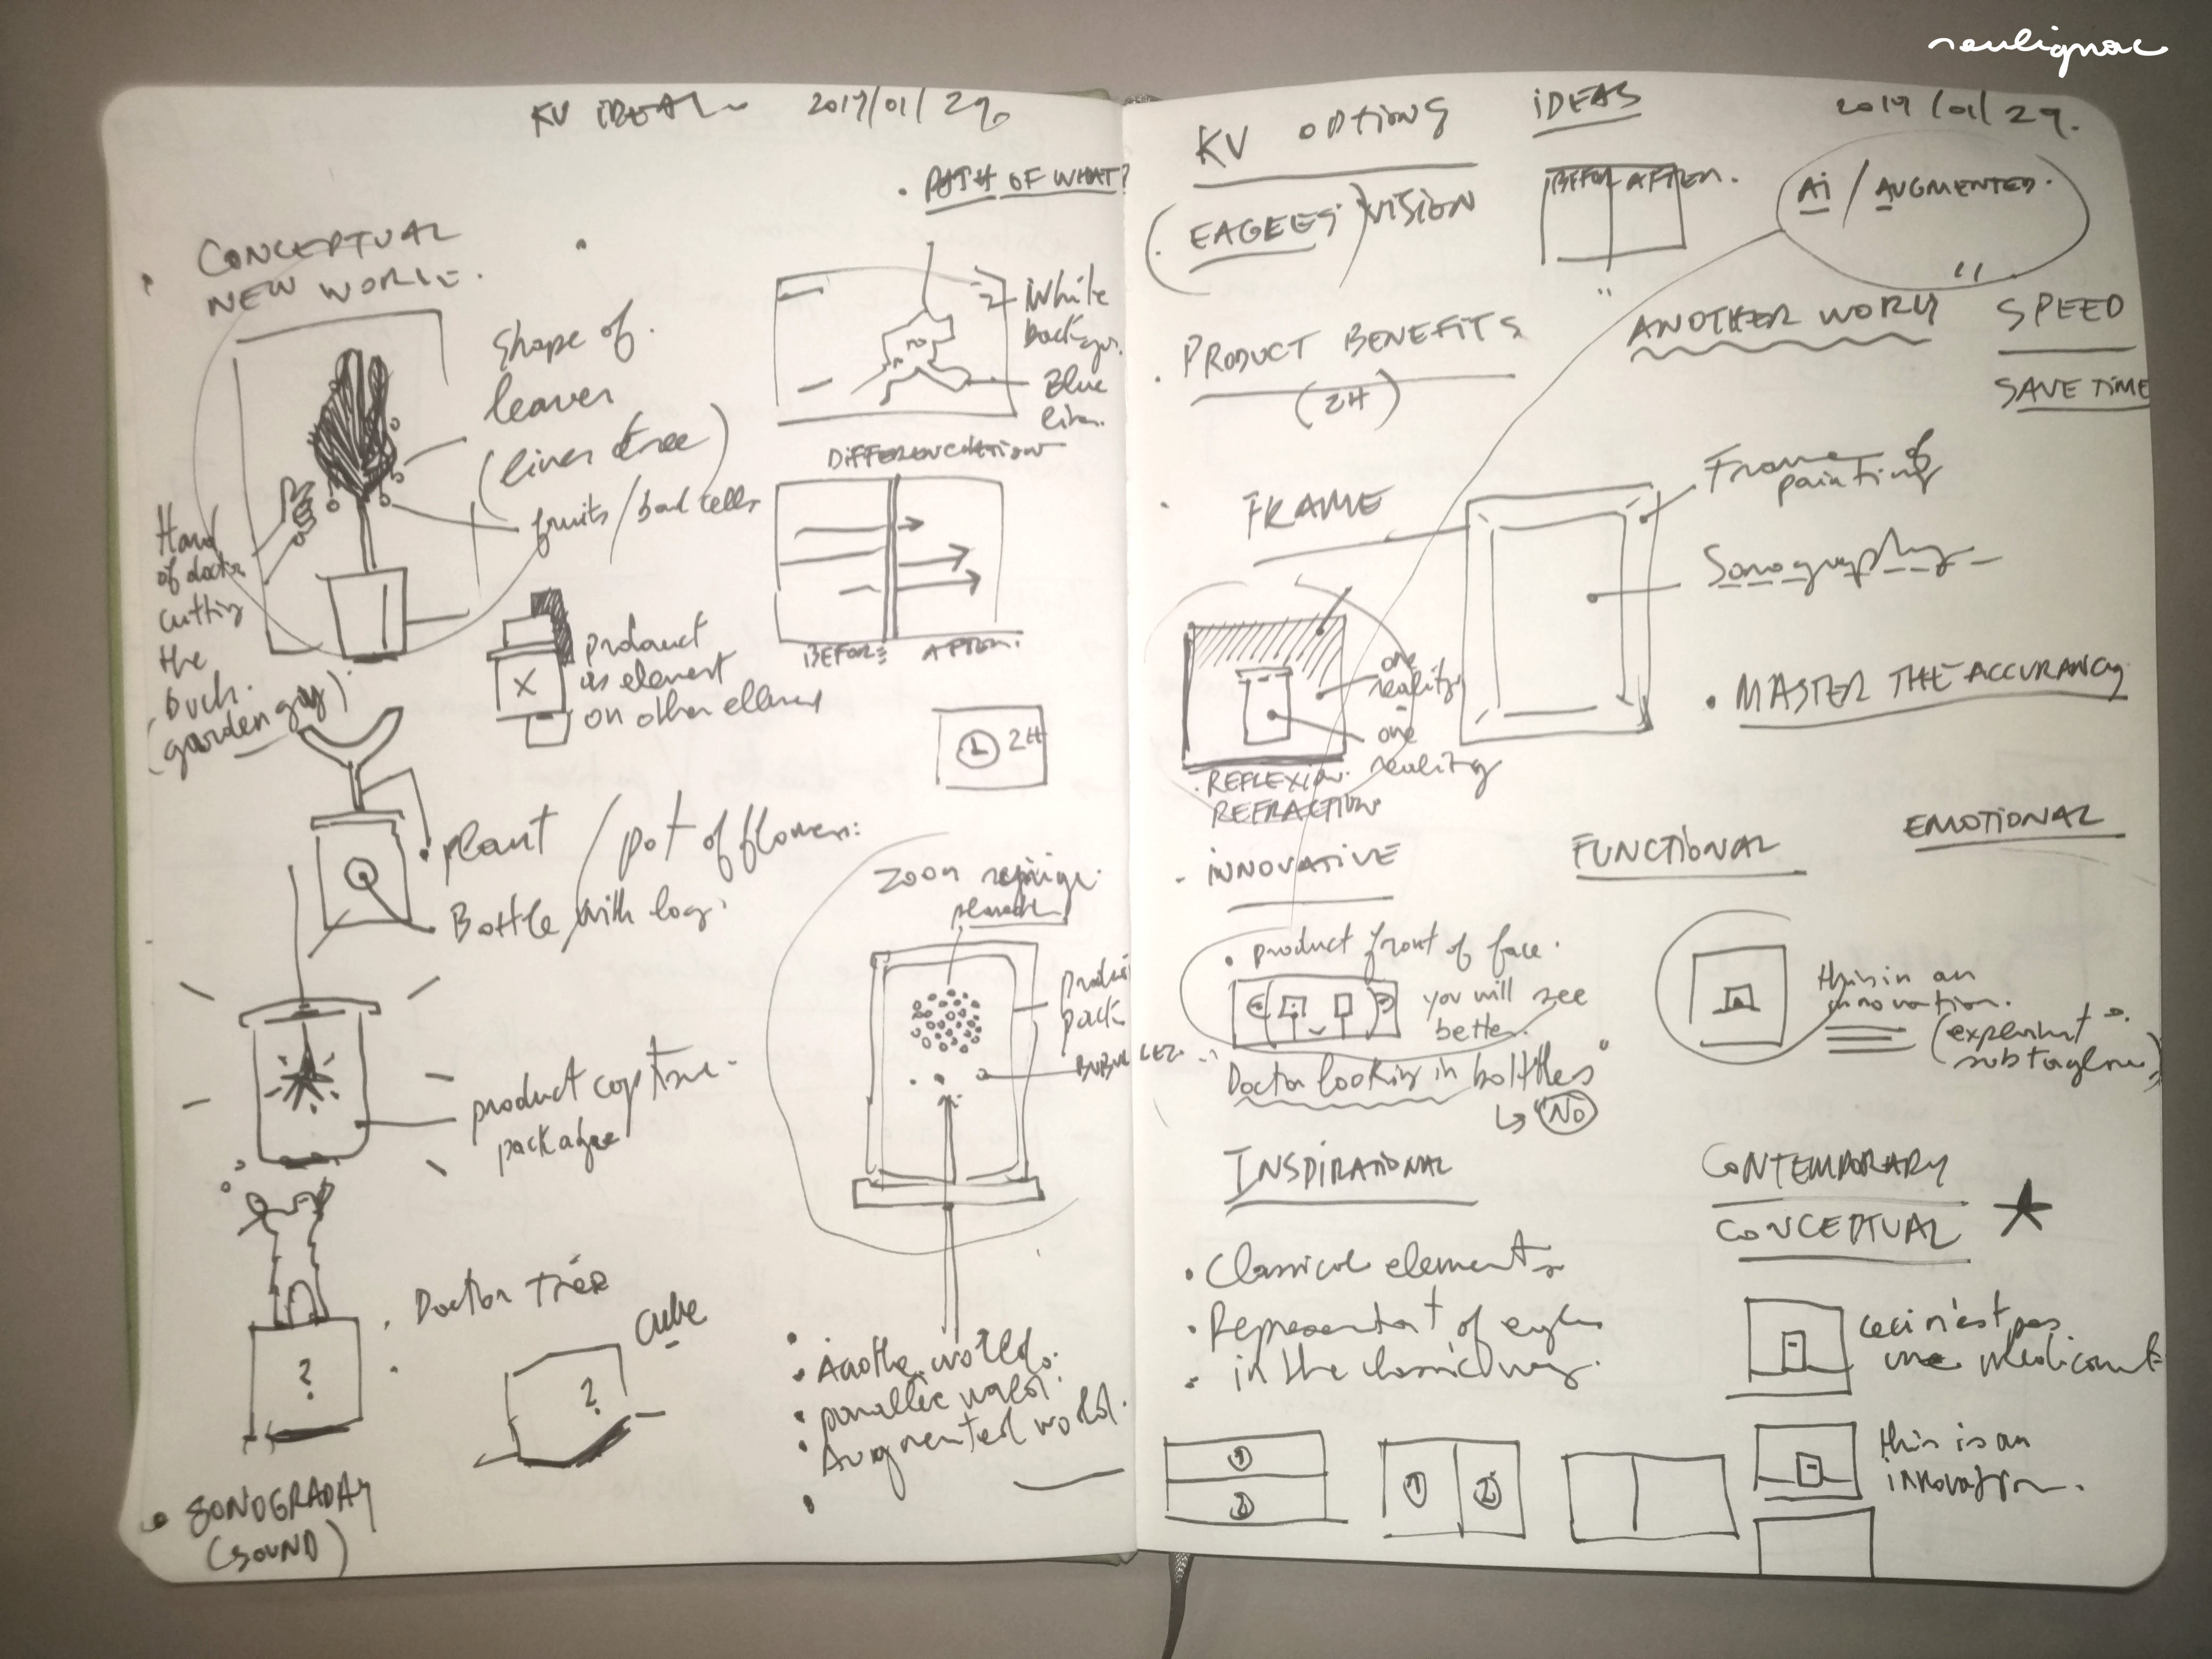 KV IDEAS 2019/01/29.
PATH OF WHAT?
CONCEPTUAL
NEW WORLD.
Shape of
leaves
(liver tree)
fruits / bad cells
Hand
of doctor
cutting
the
buch.
(garden guy)
product
as element
on other element
White
backgr.
Blue
DIFFERENCIATION
BEFORE AFTER.
2H
plant / pot of flowers:
Bottle with logo.
product capture
package
Zoom
product
pack
Doctor Tree
?
cube
?
Another world.
parallel world.
Augmented world.
SONOGRAPHY
(SOUND)
reulignac
KV OPTIONS IDEAS 2019/01/29.
(EAGEES) VISION
BEFORE AFTER.
AI / AUGMENTED.
" ANOTHER WORLD "
SPEED
SAVE TIME
PRODUCT BENEFITS
(2H)
FRAME
Frame of
painting
Sonography
one
reality
one
reality
REFLEXION.
REFRACTION
MASTER THE ACCURANCY
INNOVATIVE
FUNCTIONAL
EMOTIONAL
product front of face.
you will see
better.
"Doctor looking in botttles"
"NO"
this is an
innovation.
INSPIRATIONAL
CONTEMPORARY
CONCEPTUAL
Classical elements
in the classic way.
ceci n'est pas
une medicament
this is an
innovation.
1
2
1
2